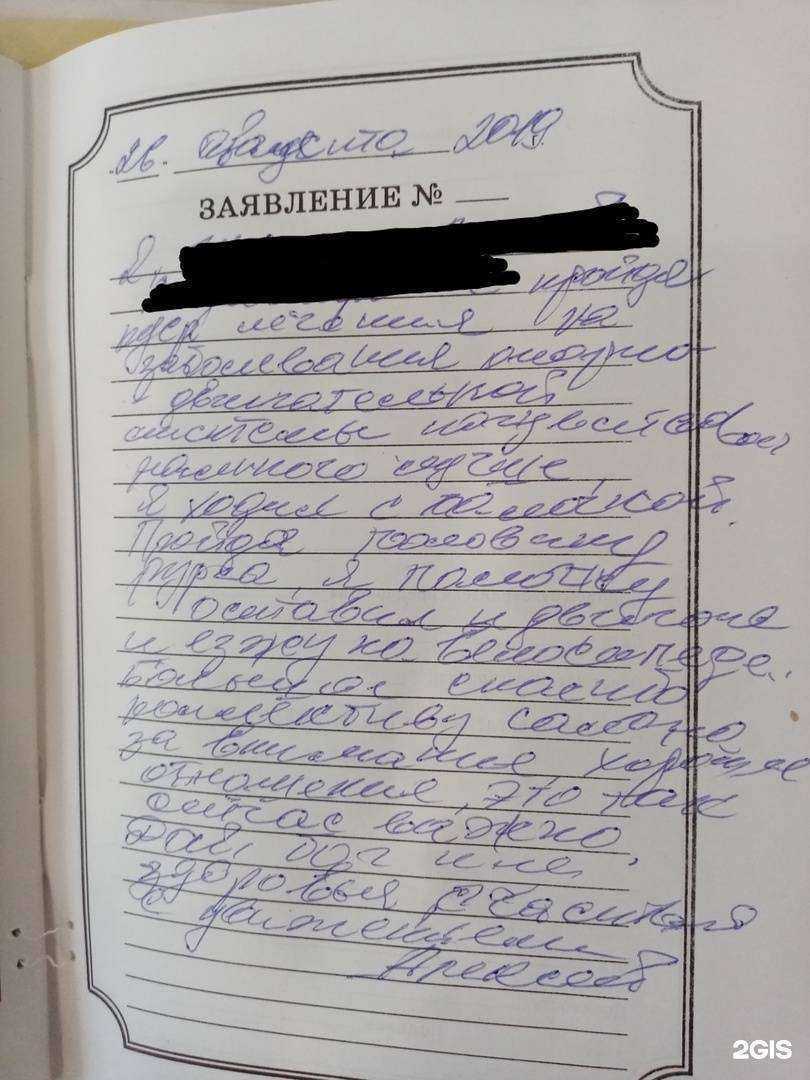 26. августа 2019
ЗАЯВЛЕНИЕ №
Я
пройдя
курс лечения на
заболевания опорно
двигательной
системы почувствовал
намного лучше,
Я ходил с палочкой.
Пройдя половину
курса, я палочку
оставил и двигаюсь
и езжу на велосипеде.
Большое спасибо
коллективу салона
за внимание, хорошее
отношения, это так
сейчас важно.
Дай, бог им
здоровья счастья
С уважением
2GIS